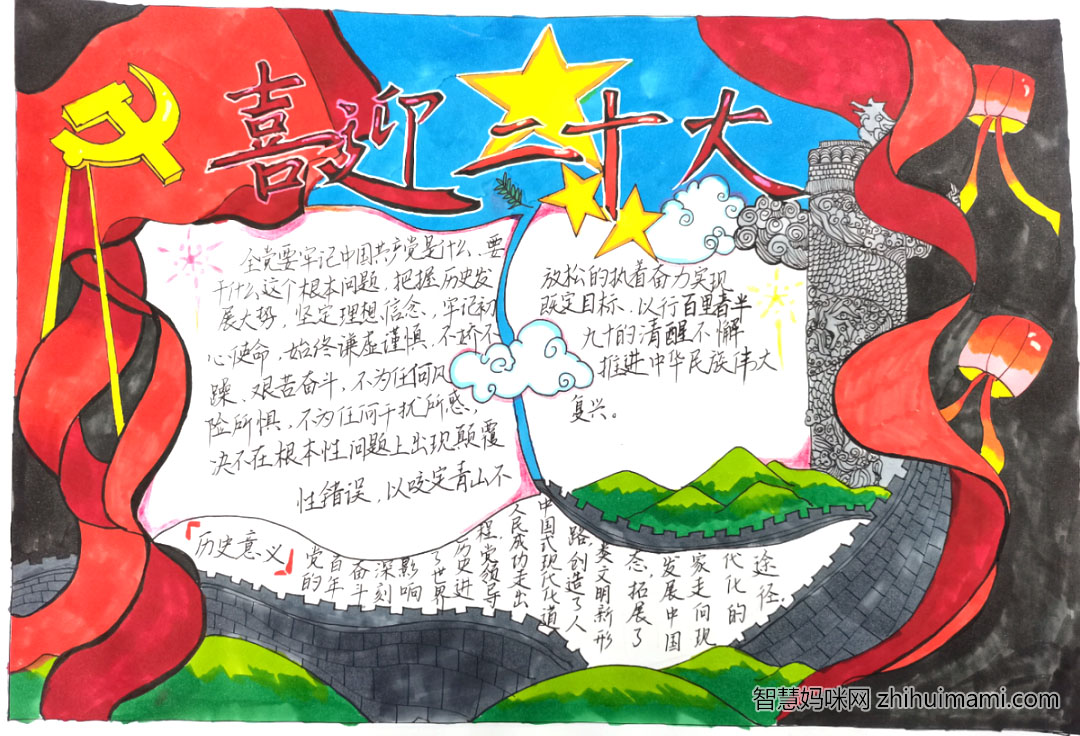 喜迎二十大
全党要牢记中国共产党是什么、要
干什么这个根本问题,把握历史发
展大势,坚定理想信念,牢记初
心使命,始终谦虚谨慎、不骄不
躁、艰苦奋斗,不为任何风
险所惧,不为任何干扰所惑,
决不在根本性问题上出现颠覆
性错误,以咬定青山不
放松的执着奋力实现
既定目标,以行百里者半
九十的清醒不懈
推进中华民族伟大
复兴。
「历史意义」
党的
百年
奋斗
深刻
影响
了世界
历史进
程,党领导
人民成功走出
中国式现代化道
路,创造了人
类文明新形
态,拓展了
发展中国
家走向现
代化的
途径.
智慧妈咪网 zhihuimami.com